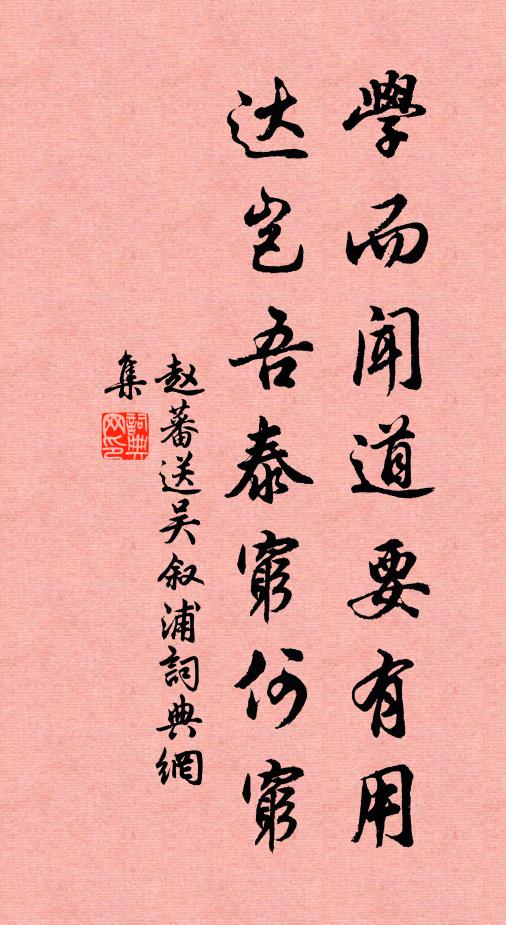 學而闻道要有用
达岂吾泰窮何窮
赵蕃送吴叙浦詞典網
集
詞典
网印